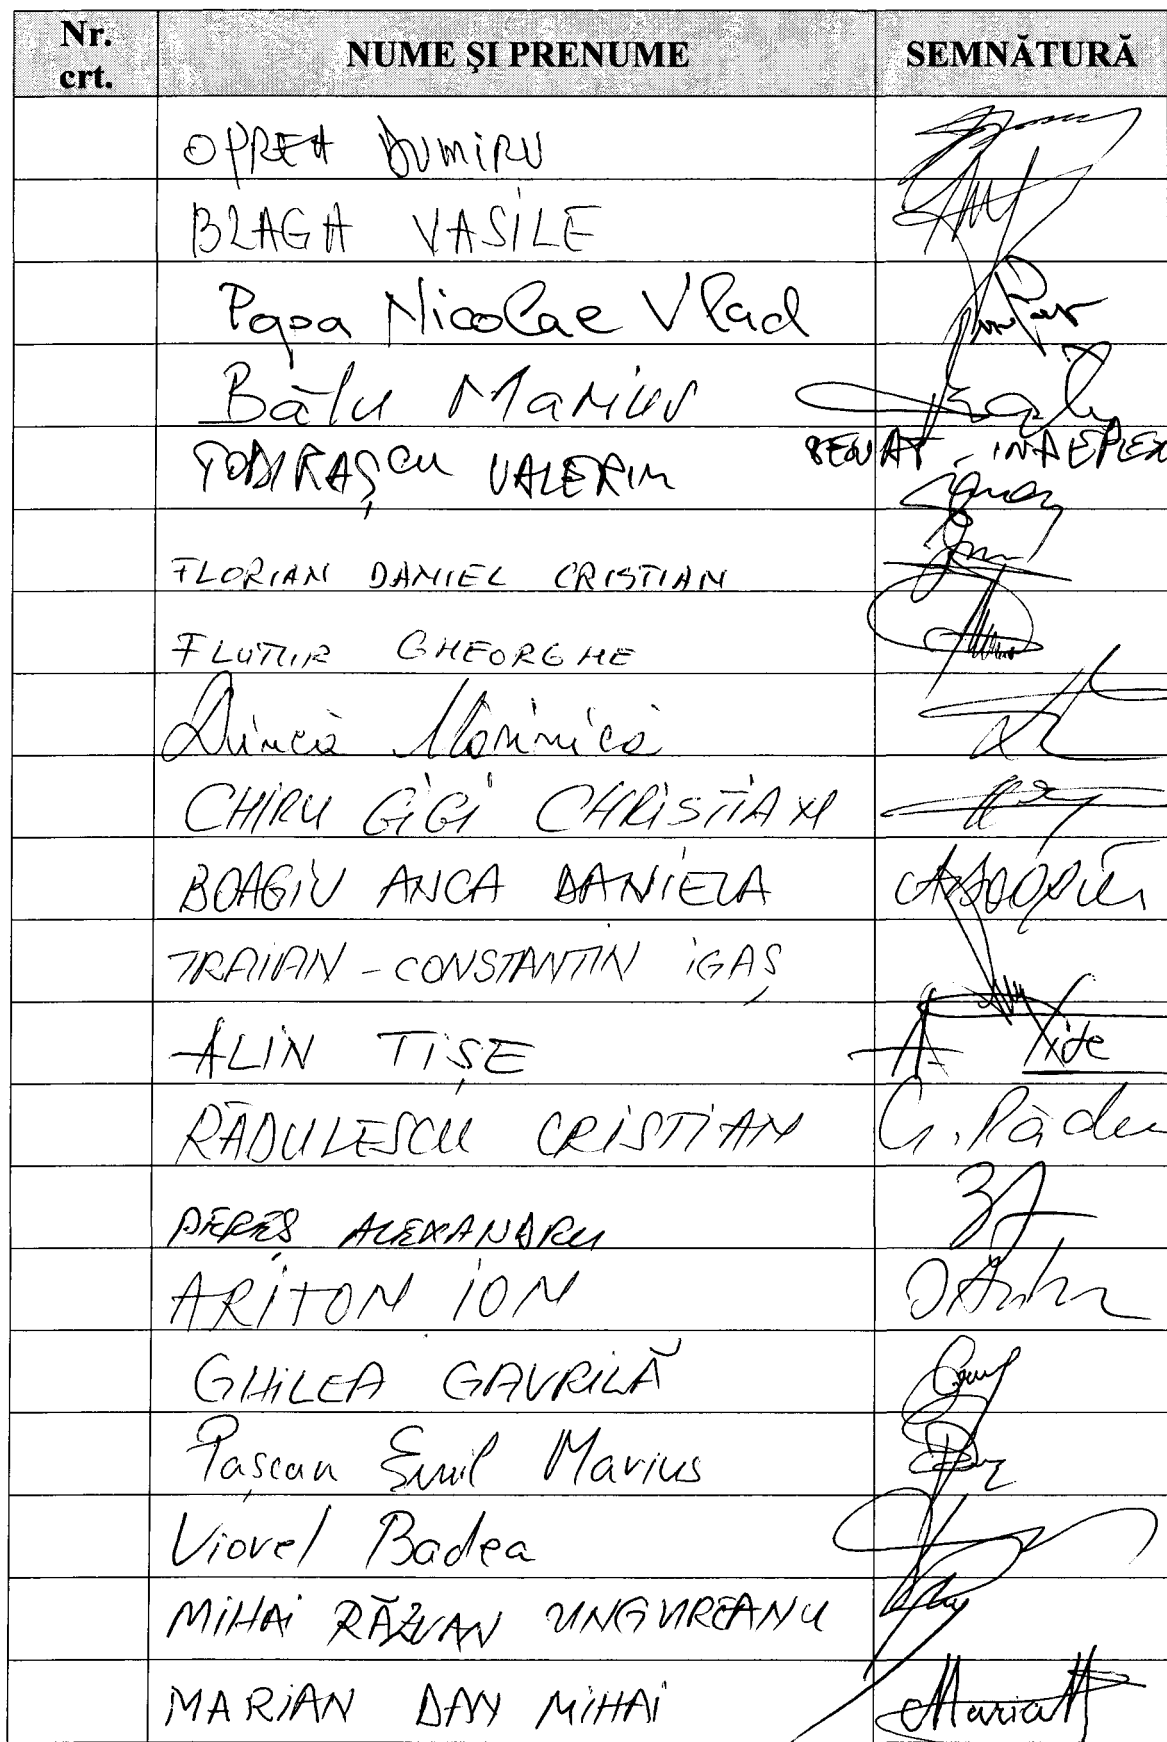 Nr. crt. NUME ŞI PRENUME SEMNĂTURĂ
OPREA DUMIRU
BLAGA VASILE
Popa Nicolae Vlad
Bălu Marius
TODIRAŞCU VALERIU SENAT INDEPEN
FLORIAN DANIEL CRISTIAN
FLUTUR GHEORGHE
Dincă Mărinică
CHIRU GIGI CHRISTIAN
BOAGIU ANCA DANIELA
TRAIAN-CONSTANTIN IGAŞ
ALIN TIŞE A. Tişe
RĂDULESCU CRISTIAN C. Rădu
PEREŞ ALEXANDRU
ARITON ION
GHILEA GAVRILĂ
Paşcan Emil Marius
Viorel Badea
MIHAI RĂZVAN UNGUREANU
MARIAN DAN MIHAI